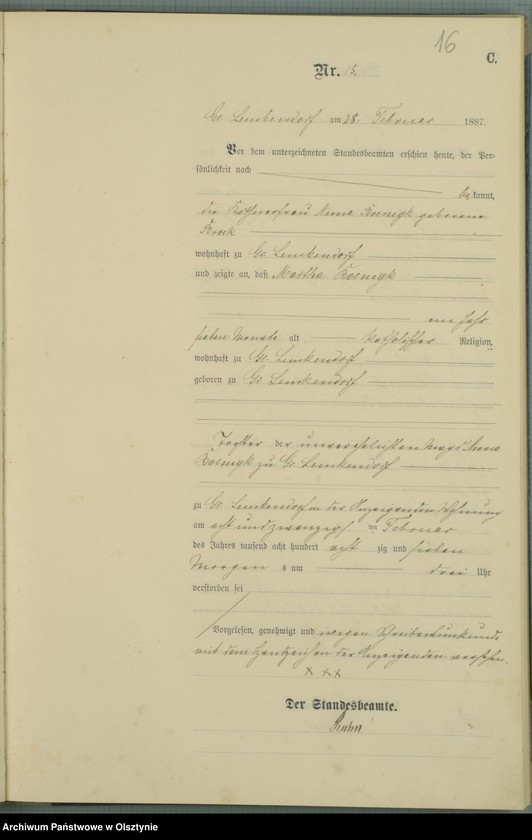 16
C.
Nr. 15.
Gr. Lemkendorf am 28. Februar 1887.
Vor dem unterzeichneten Standesbeamten erschien heute, der Per-
sönlichkeit nach
be kannt,
die Käthnerfrau Anna geborene
wohnhaft zu Gr. Lemkendorf
und zeigte an, daß Martha
ein Jahr
sieben Monate alt katholischer Religion,
wohnhaft zu Gr. Lemkendorf
geboren zu Gr. Lemkendorf
Tochter der unverehelichten Magd Anna
zu Gr. Lemkendorf
zu Gr. Lemkendorf in der Anzeigenden Wohnung
am acht und zwanzigsten Februar
des Jahres tausend acht hundert acht zig und sieben
Morgens um drei Uhr
verstorben sei
Vorgelesen, genehmigt und wegen Schreibensunkunde
mit dem Handzeichen der Anzeigenden versehen.
x x x
Der Standesbeamte.
Kuhn
Archiwum Państwowe w Olsztynie